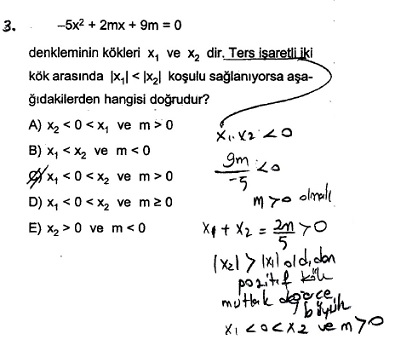 3. -5x² + 2mx + 9m = 0
denkleminin kökleri x₁ ve x₂ dir. Ters işaretli iki
kök arasında |x₁| < |x₂| koşulu sağlanıyorsa aşa-
ğıdakilerden hangisi doğrudur?
A) x₂ < 0 < x₁ ve m > 0
B) x₁ < x₂ ve m < 0
C) x₁ < 0 < x₂ ve m > 0
D) x₁ < 0 < x₂ ve m ≥ 0
E) x₂ > 0 ve m < 0
x₁.x₂ < 0
9m/-5 < 0
m > 0 olmalı
x₁ + x₂ = 2m/5 > 0
|x₂| > |x₁| old.dan
pozitif kök
mutlak değerce
büyük
x₁ < 0 < x₂ ve m > 0